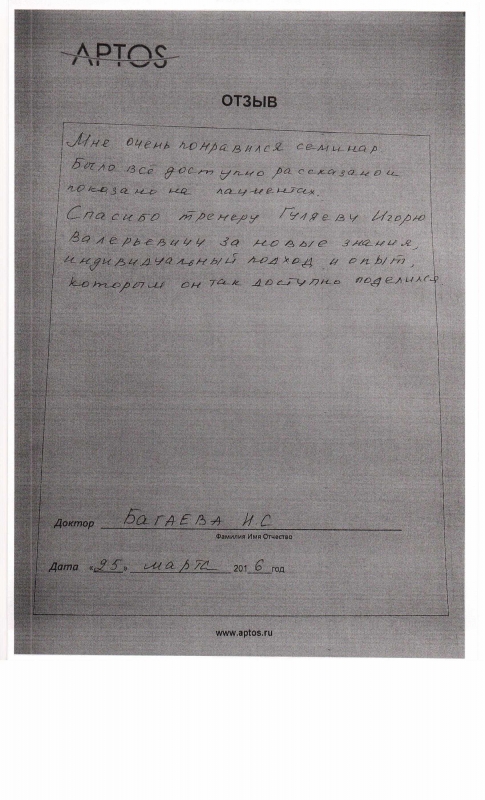 APTOS
ОТЗЫВ
Мне очень понравился семинар
Было всё доступно рассказано и
показано на пациентах.
Спасибо тренеру Гуляеву Игорю
Валерьевичу за новые знания,
индивидуальный подход и опыт,
которым он так доступно поделился
Доктор БАГАЕВА И.С
Фамилия Имя Отчество
Дата «25» марта 2016 год
www.aptos.ru